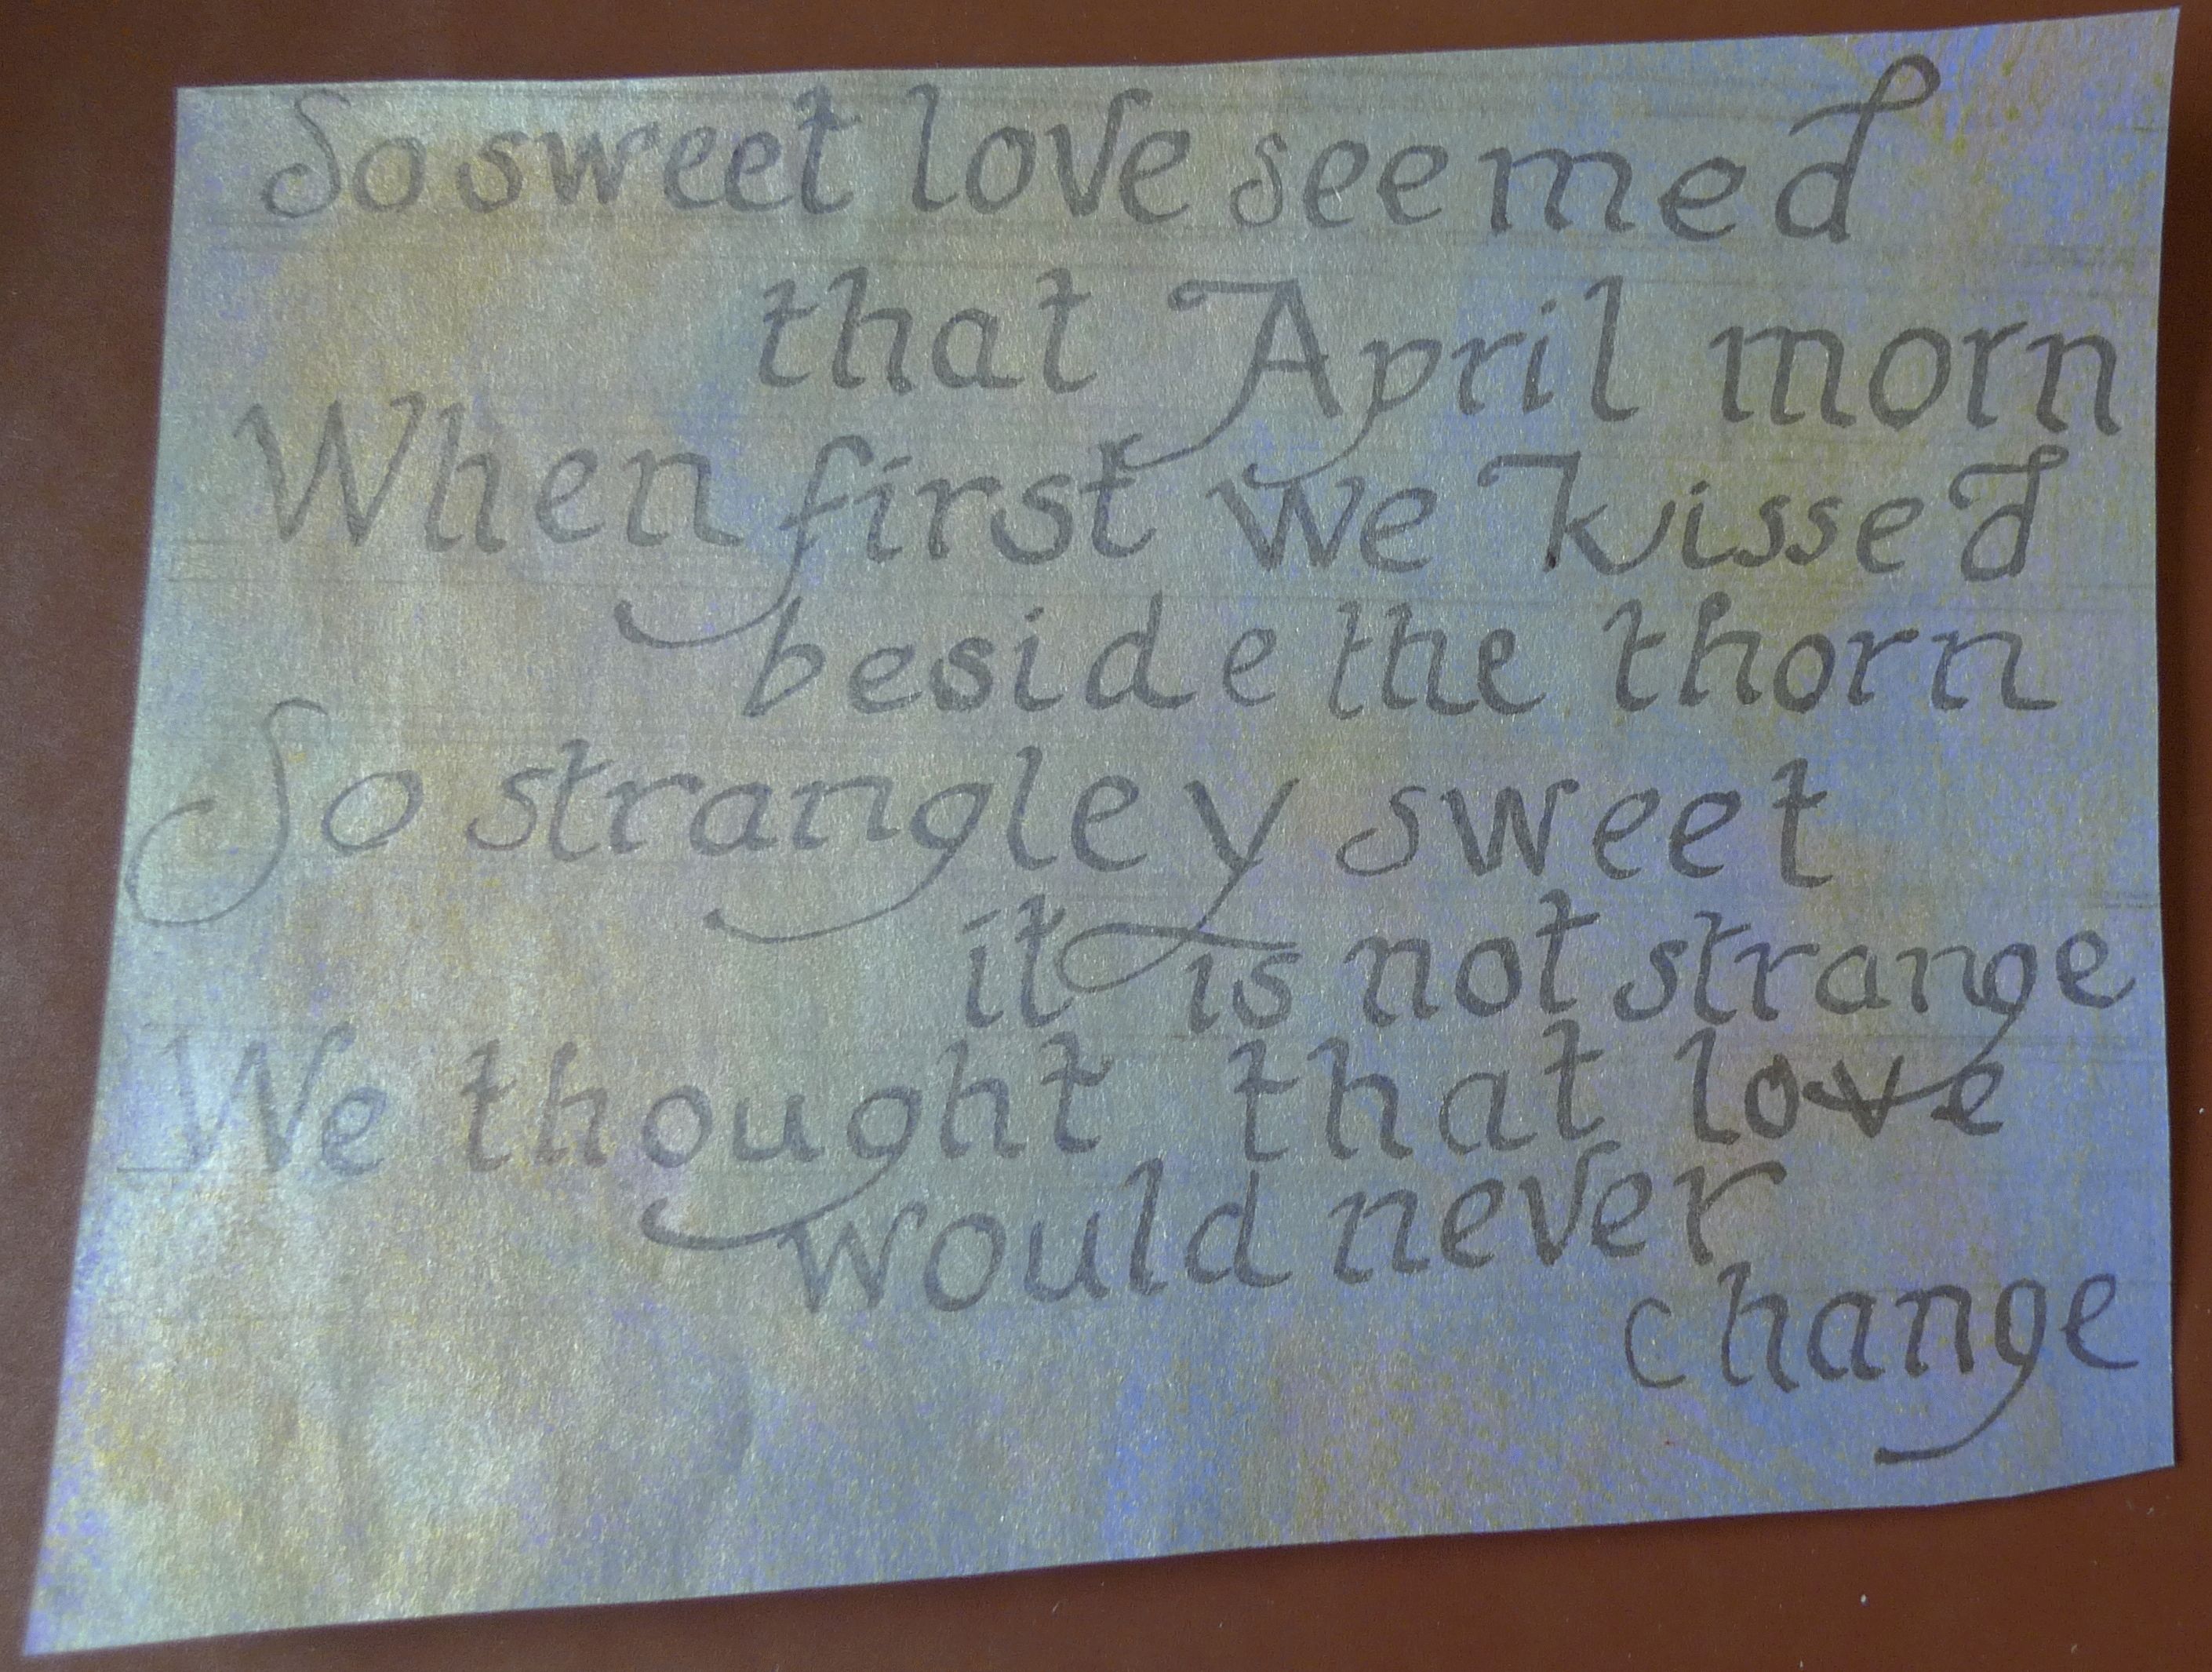 So sweet love seemed
that April morn
When first we kissed
beside the thorn
So strangley sweet
it is not strange
We thought that love
would never
change